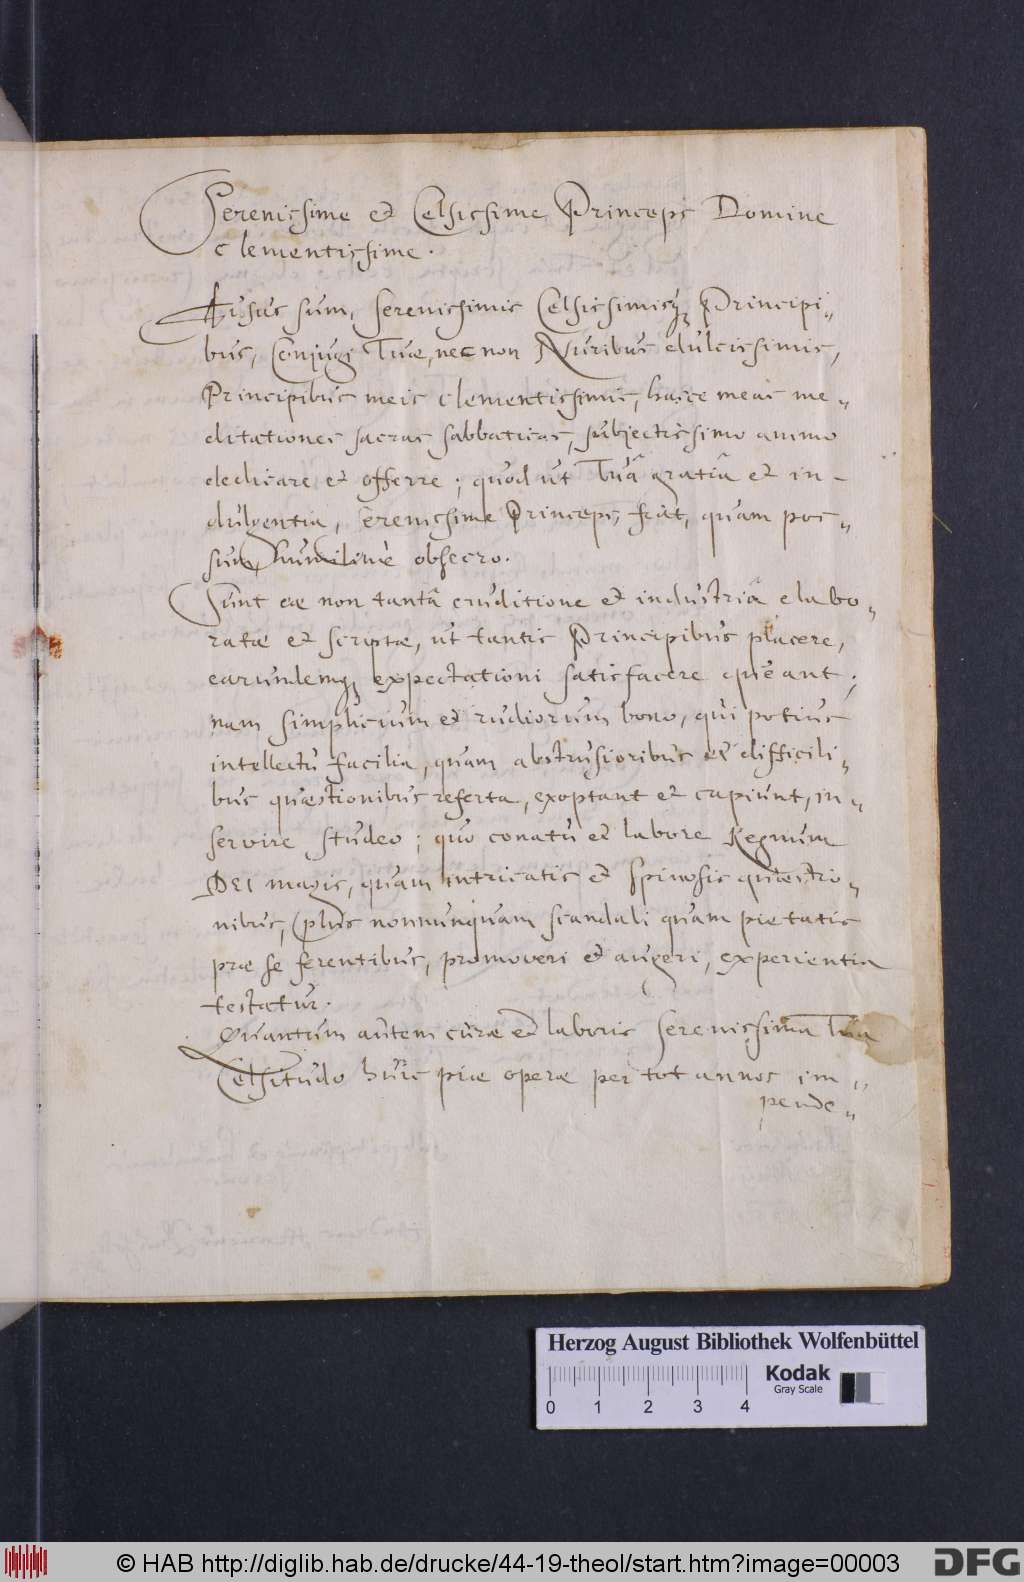 Serenissime et Celsissime Princeps Domine
clementissime.
Ausus sum, serenissimis Celsissimisq; Principi„
bus, Conjugi Tuæ, nec non Nuribus dulcissimis,
Principibus meis clementissimis, hasce meas me„
ditationes sacras sabbaticas, subjectissimo animo
dedicare et offerre; quod ut Tuâ gratiâ et in-
dulgentia, Serenissime Princeps, fiat, quam pos„
sum humilimè obsecro.
Sunt eæ non tantâ eruditione et industriâ elabo„
ratæ et scriptæ, ut tantis Principibus placere,
earundemq; expectationi satisfacere queant;
nam simplicium et rudiorum bono, qui potius
intellectu facilia, quam abstrusioribus et difficili„
bus quæstionibus referta, exoptant et capiunt, in„
servire studeo; quo conatu et labore Regnum
DEI magis, quam intricatis et spinosis quæstio„
nibus, plus nonnunquam scandali quam pietatis
præ se ferentibus, promoveri et augeri, experientia
testatur.
Quantum autem curæ et laboris Serenissima Tua
Celsitudo huic piæ operæ per tot annos im„
pende„
Herzog August Bibliothek Wolfenbüttel
Kodak
Gray Scale
0 1 2 3 4
© HAB http://diglib.hab.de/drucke/44-19-theol/start.htm?image=00003
DFG